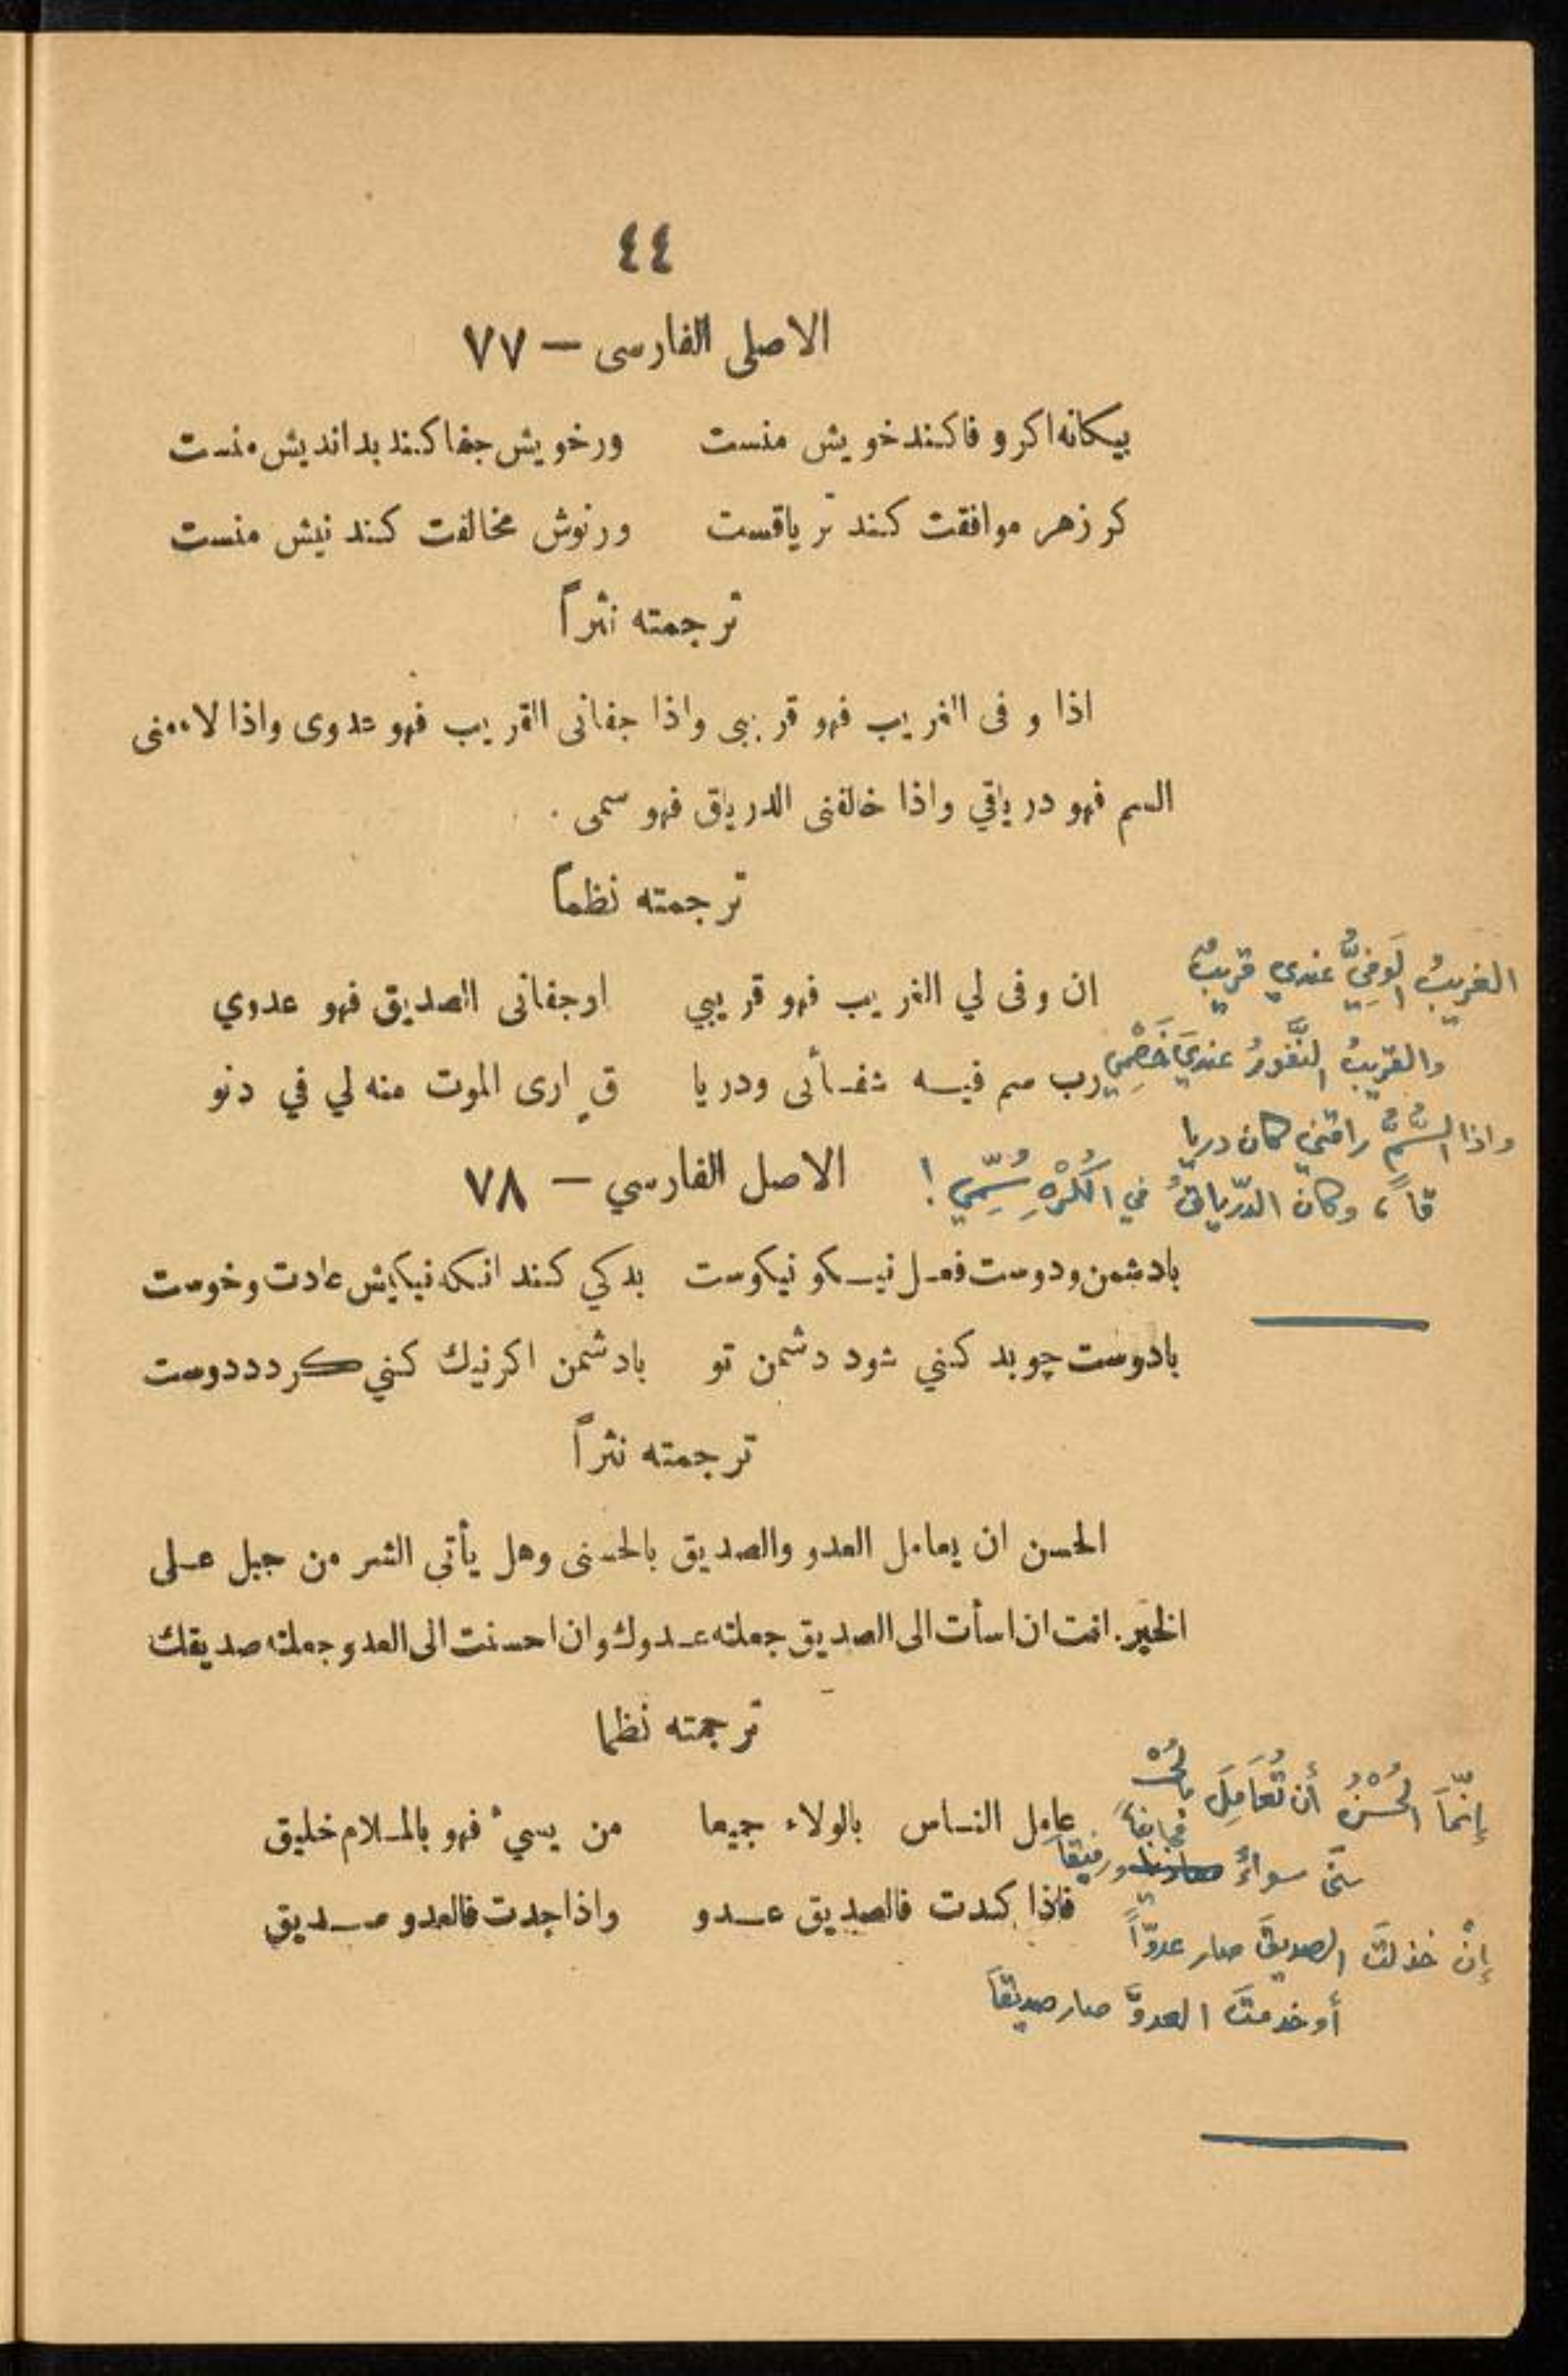 ٤٤
الاصلى الفارسى — ٧٧
بيكانه اكر وفا كند خويش منست ورخويش جفا كند بدانديش منست
كر زهر موافقت كند ترياقست ورنوش مخالفت كند نيش منست
ترجمته نثراً
اذا وفى الغريب فهو قريبى واذا جفانى القريب فهو عدوى واذا لاءمنى
السم فهو درياقي واذا خالفنى الدرياق فهو سمى .
ترجمته نظماً
ان وفى لي الغريب فهو قريبي اوجفانى الصديق فهو عدوي
رب سم فيه شفائى ودريا قٍ ارى الموت منه لي في دنو
الغريبُ الَوفِيُّ عندي قريبٌ
والقريبُ النَّفورُ عنديَ خَصْمِي
واذا السُّمُّ راقني كان دريا
قاً ، وكان الدّرياقُ في الكُرْهِ سُمِّي !
الاصل الفارسي — ٧٨
بادشمن ودوست فعل نيكو نيكوست بدكي كند انكه نيكيش عادت وخوست
بادوست چو بد كنني شود دشمن تو بادشمن اكر نيك كنني كردد دوست
ترجمته نثراً
الحسن ان يعامل العدو والصديق بالحسنى وهل يأتي الشر من جبل على
الخير. انت ان اسأت الى الصديق جعلته عدوك وان احسنت الى العدو جعلته صديقك
ترجمته نظما
عامل الناس بالولاء جميعا من يسيءْ فهو بالملام خليق
فاذا كدت فالصديق عدو واذا جدت فالعدو صديق
إنّمَا الحُسْنُ أن تُعَامِلَ بالحُسْـ
ـنَى سواءً مجانباً ورفيقاً
إنْ خذلتَ الصديقَ صار عدوّاً
أو خدمتَ العدوَّ صار صديقاً